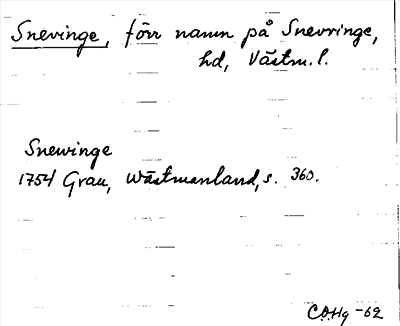 Snevinge, förr namn på Snevringe,
hd, Västm. l.
Snewinge
1754 Grau, Wästmanland, s. 360.
CÖHg -62